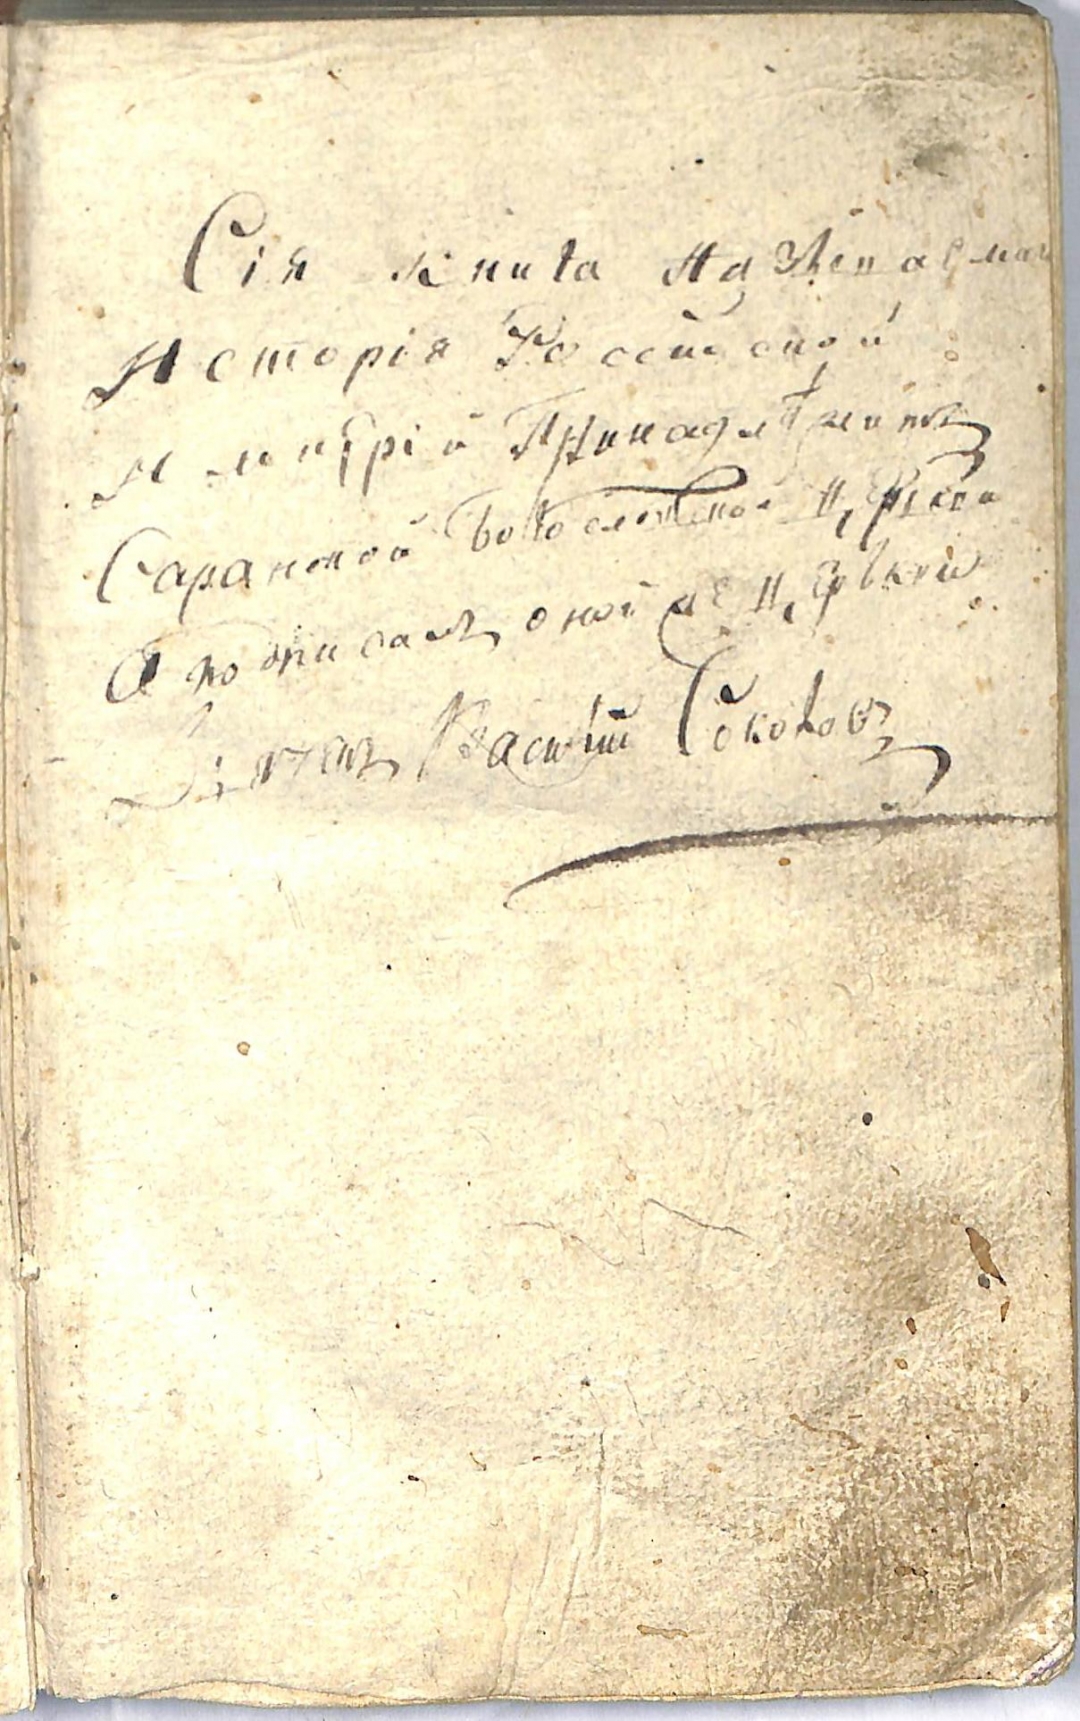 Сія книга называемая
Исторія Россійской
Имперій Принадлѣжитъ
Саранской Богословской Церькви
А подписалъ оной же Церькви
Дьячекъ Василій Соколовъ